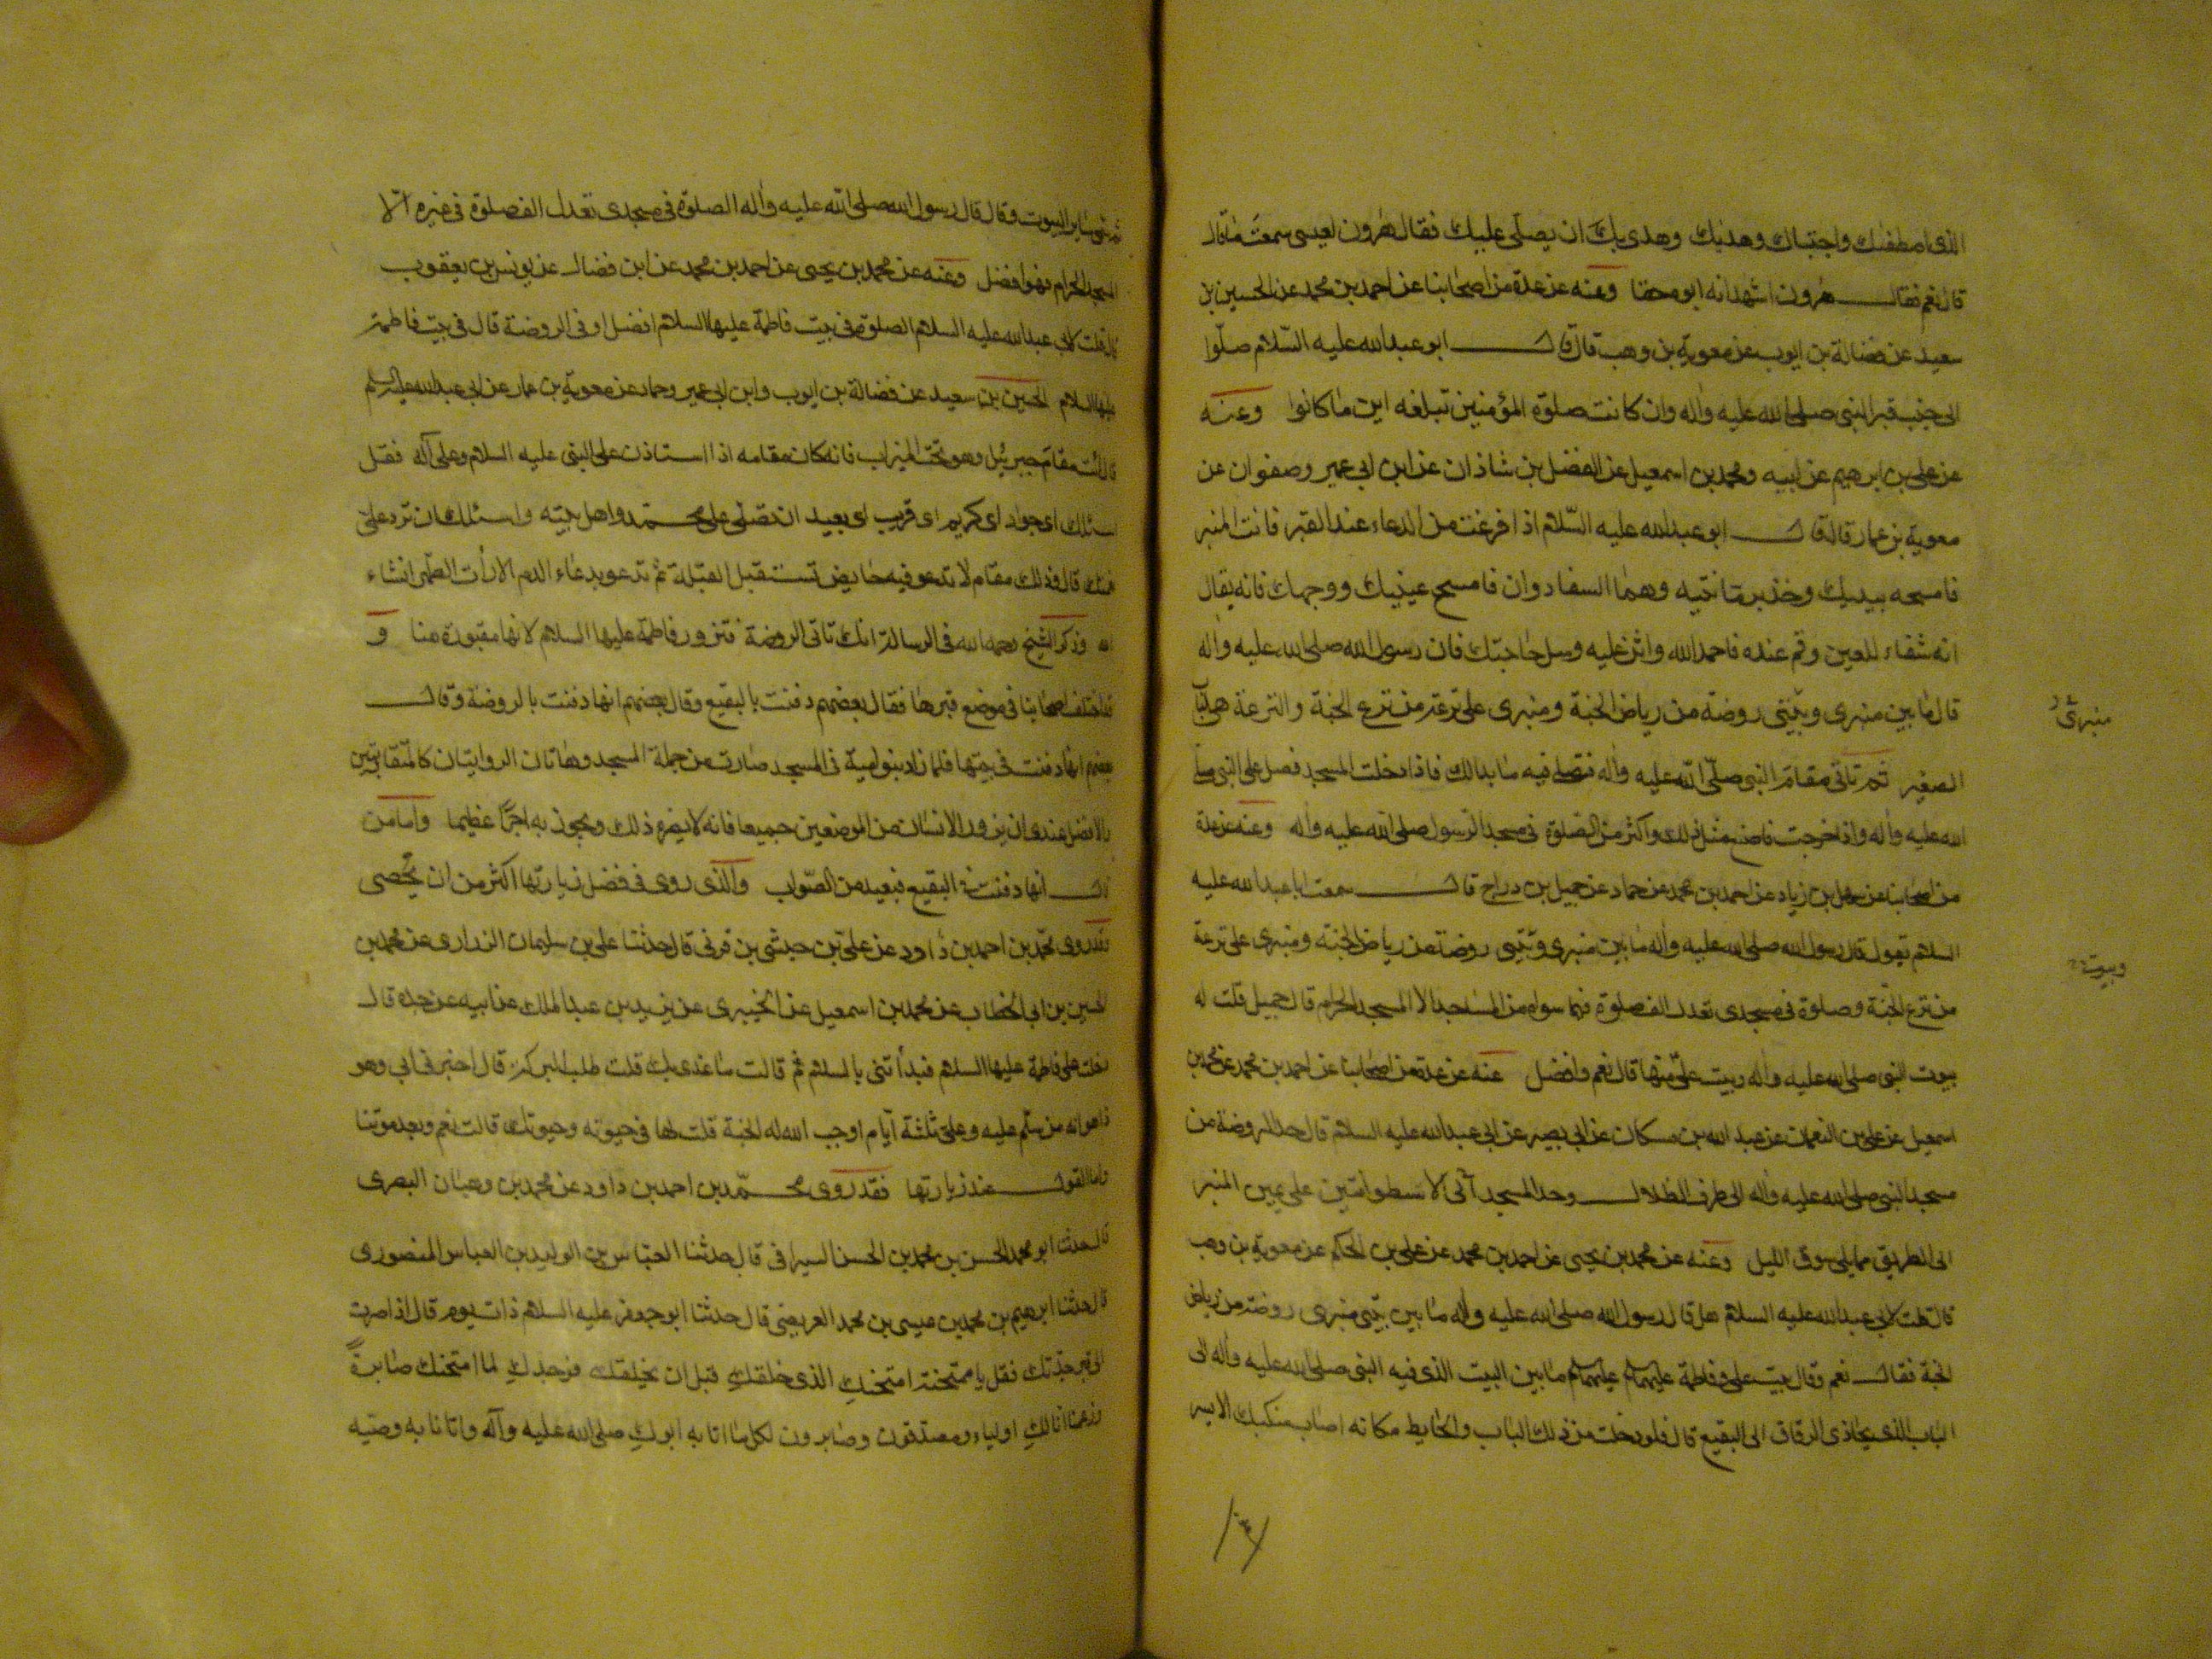 الذى اصطفاك واجتباك وهداك وهدى بك ان يصلى عليك فقال هرون لعيسى سمعت ما قال
قال نعم فقال هرون اشهد انه ابوه حقا وعنه عن عدة من اصحابنا عن احمد بن محمد عن الحسين بن
سعيد عن فضالة بن ايوب عن معوية بن وهب قال قال ابو عبدالله عليه السلام صلوا
الى جنب قبر النبى صلى الله عليه واله وان كانت صلوة المؤمنين تبلغه اين ما كانوا وعنه
عن على بن ابرهيم عن ابيه ومحمد بن اسمعيل عن الفضل بن شاذان عن ابن ابى عمير وصفوان عن
معوية بن عمار قال قال ابو عبدالله عليه السلام اذا فرغت من الدعاء عند القبر فائت المنبر
فامسحه بيديك وخذ برمانتيه وهما السفلاوان فامسح عينيك ووجهك فانه يقال
انه شفاء للعين وقم عنده فاحمد الله واثن عليه وسل حاجتك فان رسول الله صلى الله عليه واله
قال ما بين منبرى وبيتى روضة من رياض الجنة ومنبرى على ترعة من ترع الجنة والترعة هى الباب
الصغير ثم تاتى مقام النبى صلى الله عليه واله فتصلى فيه ما بدا لك فاذا دخلت المسجد فصل على النبى صلى
الله عليه واله واذا خرجت فاصنع مثل ذلك واكثر من الصلوة فى مسجد الرسول صلى الله عليه واله وعنه عن عدة
من اصحابنا عن سهل بن زياد عن احمد بن محمد عن حماد عن جميل بن دراج قال سمعت ابا عبدالله عليه
السلام يقول قال رسول الله صلى الله عليه واله ما بين منبرى وبيتى روضة من رياض الجنة ومنبرى على ترعة
من ترع الجنة وصلوة فى مسجدى تعدل الف صلوة فيما سواه من المساجد الا المسجد الحرام قال جميل قلت له
بيوت النبى صلى الله عليه واله وبيت على منها قال نعم وافضل عنه عن عدة من اصحابنا عن احمد بن محمد عن محمد بن
اسمعيل عن على بن النعمان عن عبد الله بن مسكان عن ابى بصير عن ابى عبدالله عليه السلام قال حد الروضة من
مسجد النبى صلى الله عليه واله الى طرف الظلال وحد المسجد الى الاسطوانتين على يمين المنبر
الى الطريق مما يلى سوق الليل وعنه عن محمد بن يحيى عن احمد بن محمد عن على بن الحكم عن معوية بن وهب
قال قلت لابى عبدالله عليه السلام هل قال رسول الله صلى الله عليه واله ما بين بيتى ومنبرى روضة من رياض
الجنة فقال نعم وقال بيت على وفاطمة عليهما السلام ما بين البيت الذى فيه النبى صلى الله عليه واله الى
الباب الذى يحاذى الزقاق الى البقيع قال فلو دخلت من ذلك الباب والحايط مكانه اصاب منكبك الايسر
منبرى
وبيوت
ثم سمى ساير البيوت وقال قال رسول الله صلى الله عليه واله الصلوة فى مسجدى تعدل الف صلوة فى غيره الا
المسجد الحرام فهو افضل وعنه عن محمد بن يحيى عن احمد بن محمد عن ابن فضال عن يونس بن يعقوب
قال قلت لابى عبدالله عليه السلام الصلوة فى بيت فاطمة عليها السلام افضل او فى الروضة قال فى بيت فاطمة
عليها السلام الحسين بن سعيد عن فضالة بن ايوب وابن ابى عمير وحماد عن معوية بن عمار عن ابى عبدالله عليه السلم
قال ائت مقام جبرئيل وهو تحت الميزاب فانه كان مقامه اذا استاذن على النبى عليه السلام وعلى آله فقل
اسئلك اى جواد اى كريم اى قريب اى بعيد ان تصلى على محمد واهل بيته واسئلك ان ترد على
نعمتك قال وذلك مقام لا تدعو فيه حايض تستقبل القبلة ثم تدعو بدعاء الدم الا رأت الطهر انشاء
الله وذكر الشيخ رحمه الله فى الرسالة انك تاتى الروضة فتزور فاطمة عليها السلام لانها مقبورة هنا و
قد اختلف اصحابنا فى موضع قبرها فقال بعضهم دفنت بالبقيع وقال بعضهم انها دفنت بالروضة وقال
بعضهم انها دفنت فى بيتها فلما زاد بنو امية فى المسجد صارت من جملة المسجد وهاتان الروايتان كالمتقاربتين
والافضل عندى ان يزور الانسان من الموضعين جميعا فانه لا يضره ذلك ويحوز به اجرا عظيما واما من
قال انها دفنت فى البقيع فبعيد من الصواب والذى روى فى فضل زيارتها اكثر من ان يحصى
فقد روى محمد بن احمد بن داود عن على بن حبشى بن قونى قال حدثنا على بن سليمان الزرارى عن محمد بن
الحسين بن ابى الخطاب عن محمد بن اسمعيل عن الخيبرى عن يزيد بن عبد الملك عن ابيه عن جده قال
دخلت على فاطمة عليها السلام فبدأتنى بالسلام ثم قالت ما غدى بك قلت طلب البركة قال اخبرنى ابى وهو
ذا هو انه من سلم عليه وعلى ثلثة ايام اوجب الله له الجنة قلت لها فى حيوته وحيوتك قالت نعم وبعد موتنا
واما القول عند زيارتها فقد روى محمد بن احمد بن داود عن محمد بن وهبان البصرى
قال حدثنا ابو محمد الحسن بن محمد بن الحسن السيرافى قال حدثنا العباس بن الوليد بن العباس المنصورى
قال حدثنا ابرهيم بن محمد بن عيسى بن محمد العريضى قال حدثنا ابو جعفر عليه السلام ذات يوم قال اذا صرت
الى قبر جدتك فقل يا ممتحنة امتحنك الذى خلقك قبل ان يخلقك فوجدك لما امتحنك صابرة
وزعمنا انا لك اولياء ومصدقون وصابرون لكل ما اتانا به ابوك صلى الله عليه وآله واتانا به وصيه